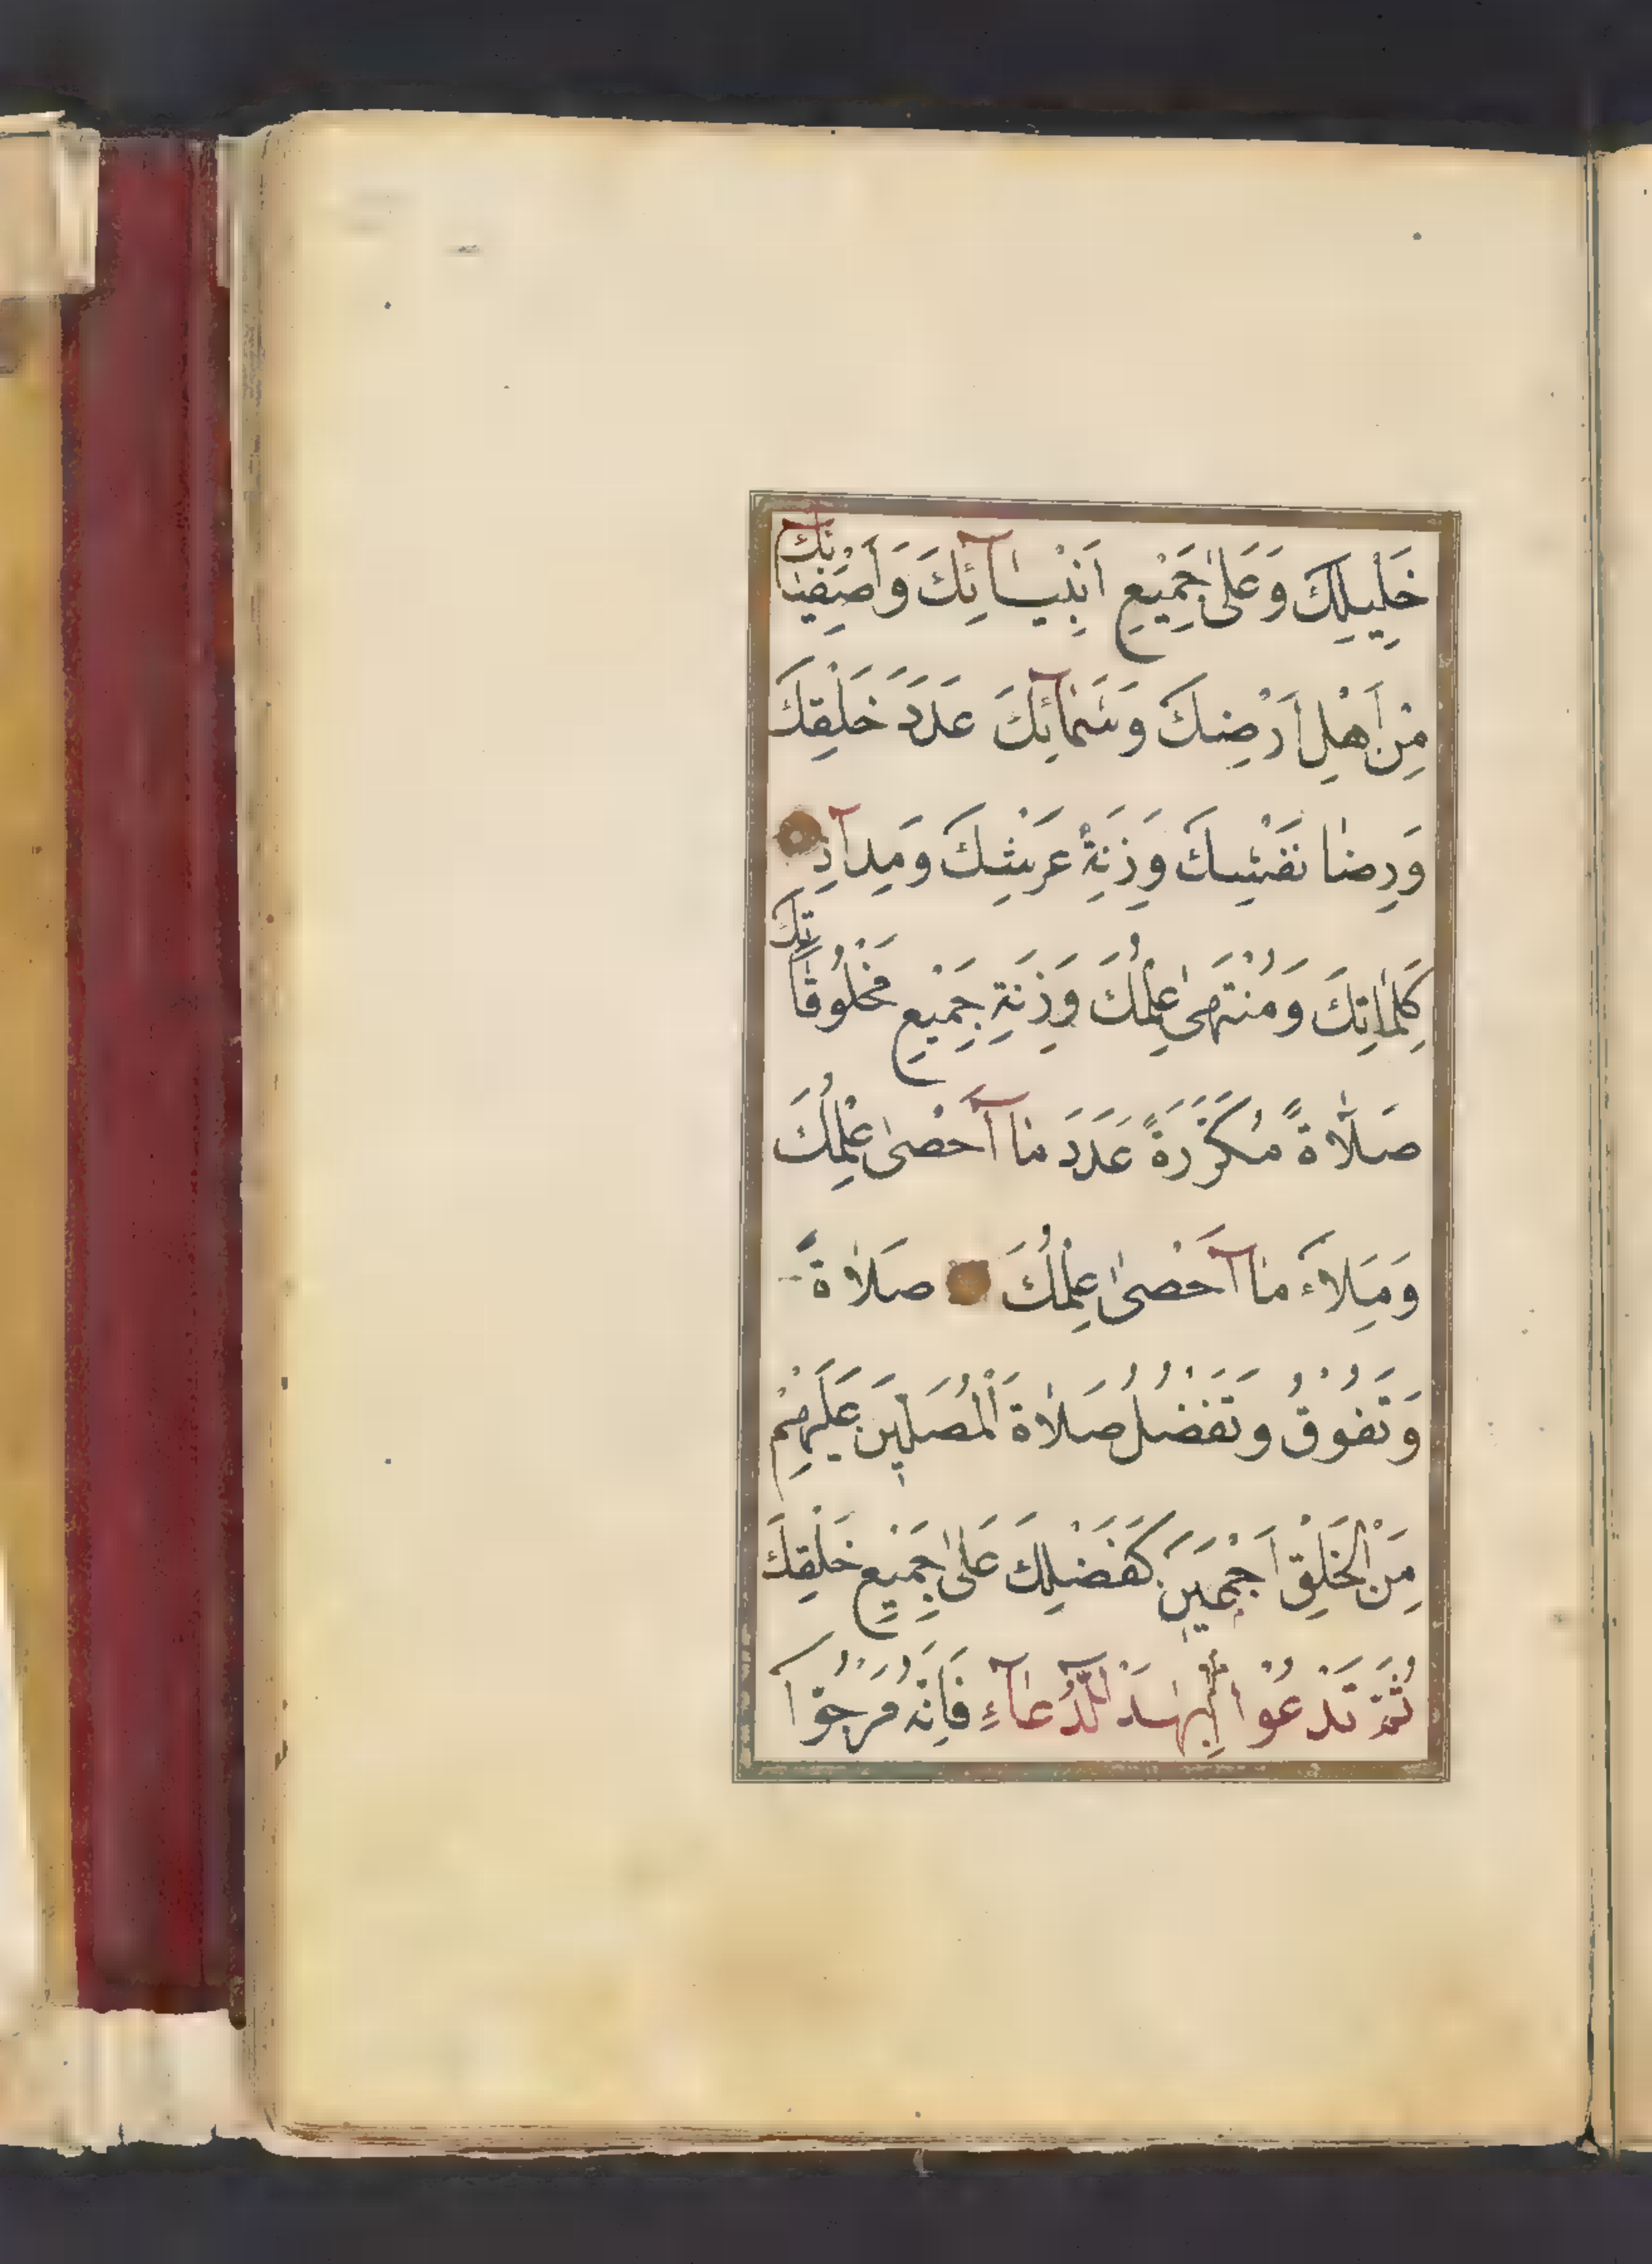 خَلِيلِكَ وَعَلٰى جَمِيْعِ اَنْبِيَآئِكَ وَاَصْفِيَائِكَ
مِنْ اَهْلِ اَرْضِكَ وَسَمَآئِكَ عَدَدَ خَلْقِكَ
وَرِضٰا نَفْسِكَ وَزِنَةَ عَرْشِكَ وَمِدآدِ
كَلِمٰاتِكَ وَمُنْتَهٰى عِلْمُكَ وَزِنَةِ جَمِيْعِ مَخْلُوقَاتِكَ
صَلٰاةً مُكَرَّرَةً عَدَدَ مٰا آحْصٰى عِلْمُكَ
وَمِلَاءَ مٰا آحْصٰى عِلْمُكَ صَلٰاةً
وَتَفُوْقُ وَتَفْضُلُ صَلٰاةَ الْمُصَلِيْنَ عَلَيْهِمْ
مِنَ الْخَلْقِ اَجْمَعِيْنَ كَفَضْلِكَ عَلٰى جَمِيْعِ خَلْقِكَ
ثُمَّ تَدْعُوْا بِهٰذَ الدُّعٰآءِ فَاِنَّهُ مَرْجُوُّا